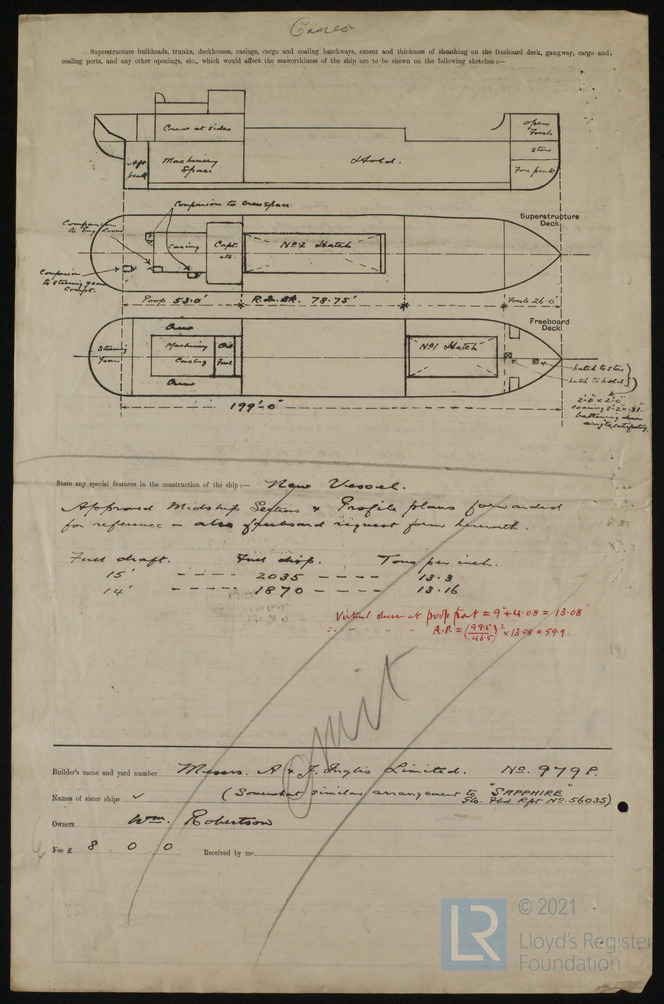 Cameo
Superstructure bulkheads, trunks, deckhouses, casings, cargo and coaling hatchways, extent and thickness of sheathing on the freeboard deck, gangway, cargo and
coaling ports, and any other openings, etc., which would affect the seaworthiness of the ship are to be shewn on the following sketches:—
Crew at sides
open
Focsle
store
Aft
peak
Machinery
Space
Hold.
Fore peak
Companion to Crew space
Companion
to Eng Room
Superstructure
Deck
Casing
Capt.
etc.
No 2 Hatch
Companion
to steering gear
Compt.
Poop 53·0'
R.Q.DK. 78·75'
Focsle 26·0'
Freeboard
Deck
Crew
Steering
Gear
Machinery
Casing
Oil
Fuel
No 1 Hatch
Crew
hatch to store
hatch to hold
2'-0" x 2'-0"
199'-0"
State any special features in the construction of the ship:— New Vessel.
Approved Midship Section & Profile plans forwarded
for reference – also freeboard request form herewith.
Full draft. Full disp. Tons per inch.
15' - - - - 2035 - - - - 13.3
14' - - - - 1870 - - - - 13.16
Virtual sheer at poop front = 9" + 4.08 = 13.08
" " - - R.P. = (99.5/46.5)² x 13.08 = 59.9.
Omit
Builder's name and yard number Messrs. A & J. Inglis Limited. No. 979P.
Names of sister ships ✓ (Somewhat similar arrangement to "SAPPHIRE"
Gls. Fbd Rpt No. 56035)
Owners Wm. Robertson
Fee £ 8 0 0 Received by me
© 2021
LR Lloyd's Register
Foundation